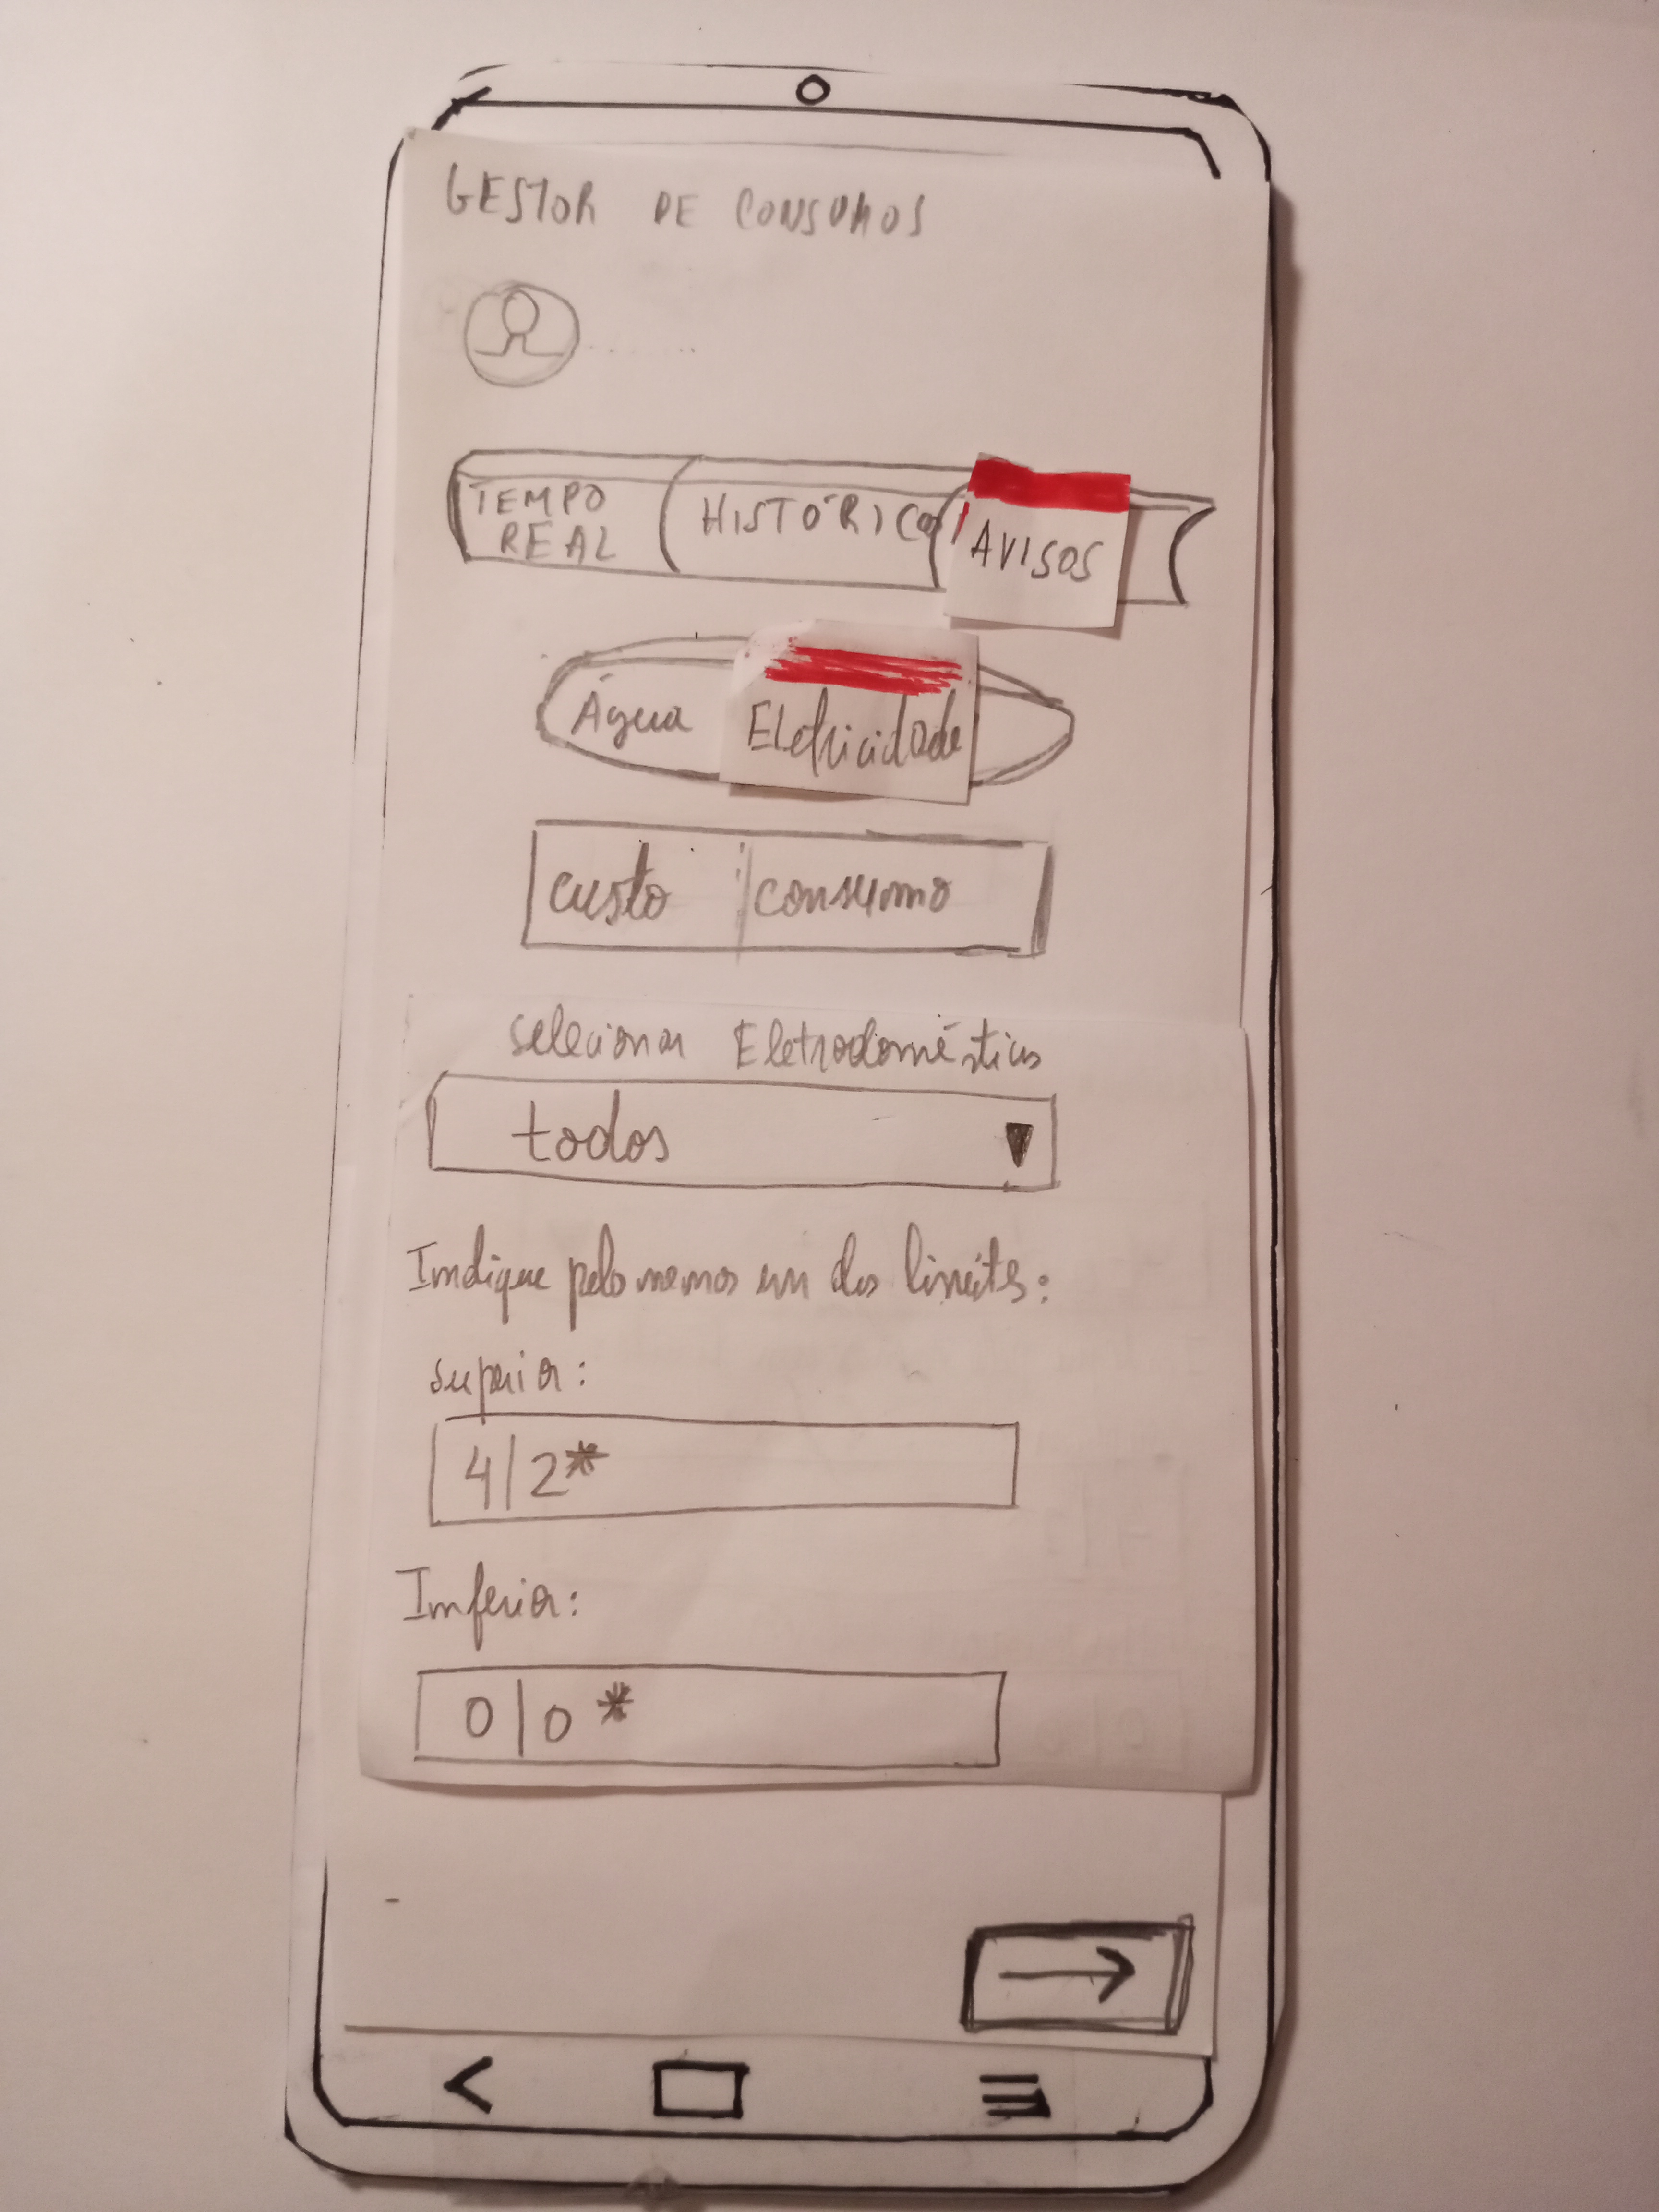 GESTOR DE CONSUMOS
TEMPO REAL HISTÓRICO AVISOS
Água Eletricidade
custo consumo
selecionar Eletrodomésticos
todos
Indique pelo menos um dos limites:
superior:
4|2*
Inferior:
0|0*